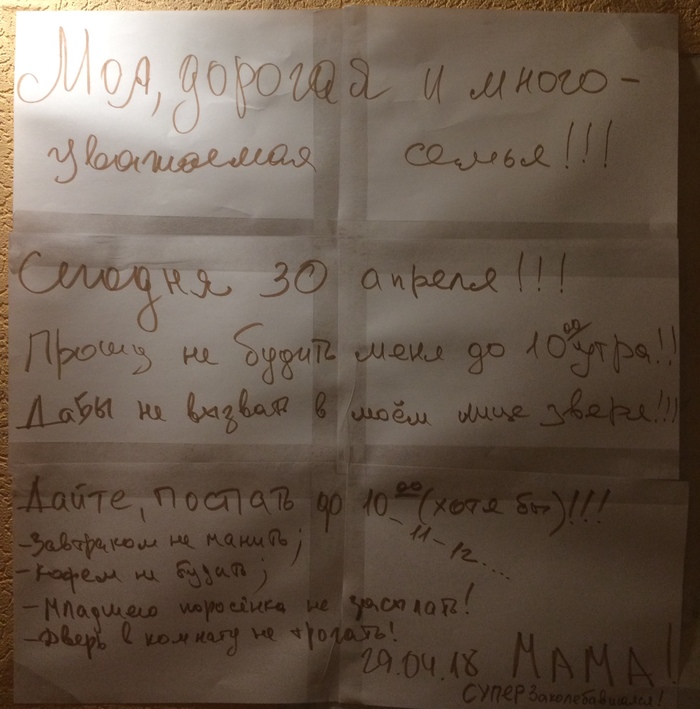 Моя, дорогая и много-
уважаемая семья!!!
Сегодня 30 апреля!!!
Прошу не будить меня до 10⁰⁰ утра!!
Дабы не вызвать в моём лице зверя!!!
Дайте, поспать до 10⁰⁰ (хотя бы)!!!
- 11 - 12 - ...
- Завтраком не манить;
- Кофем не будить;
- Младшего поросёнка не засылать!
- Дверь в комнату не трогать!
29.04.18 МАМА!
СУПЕР